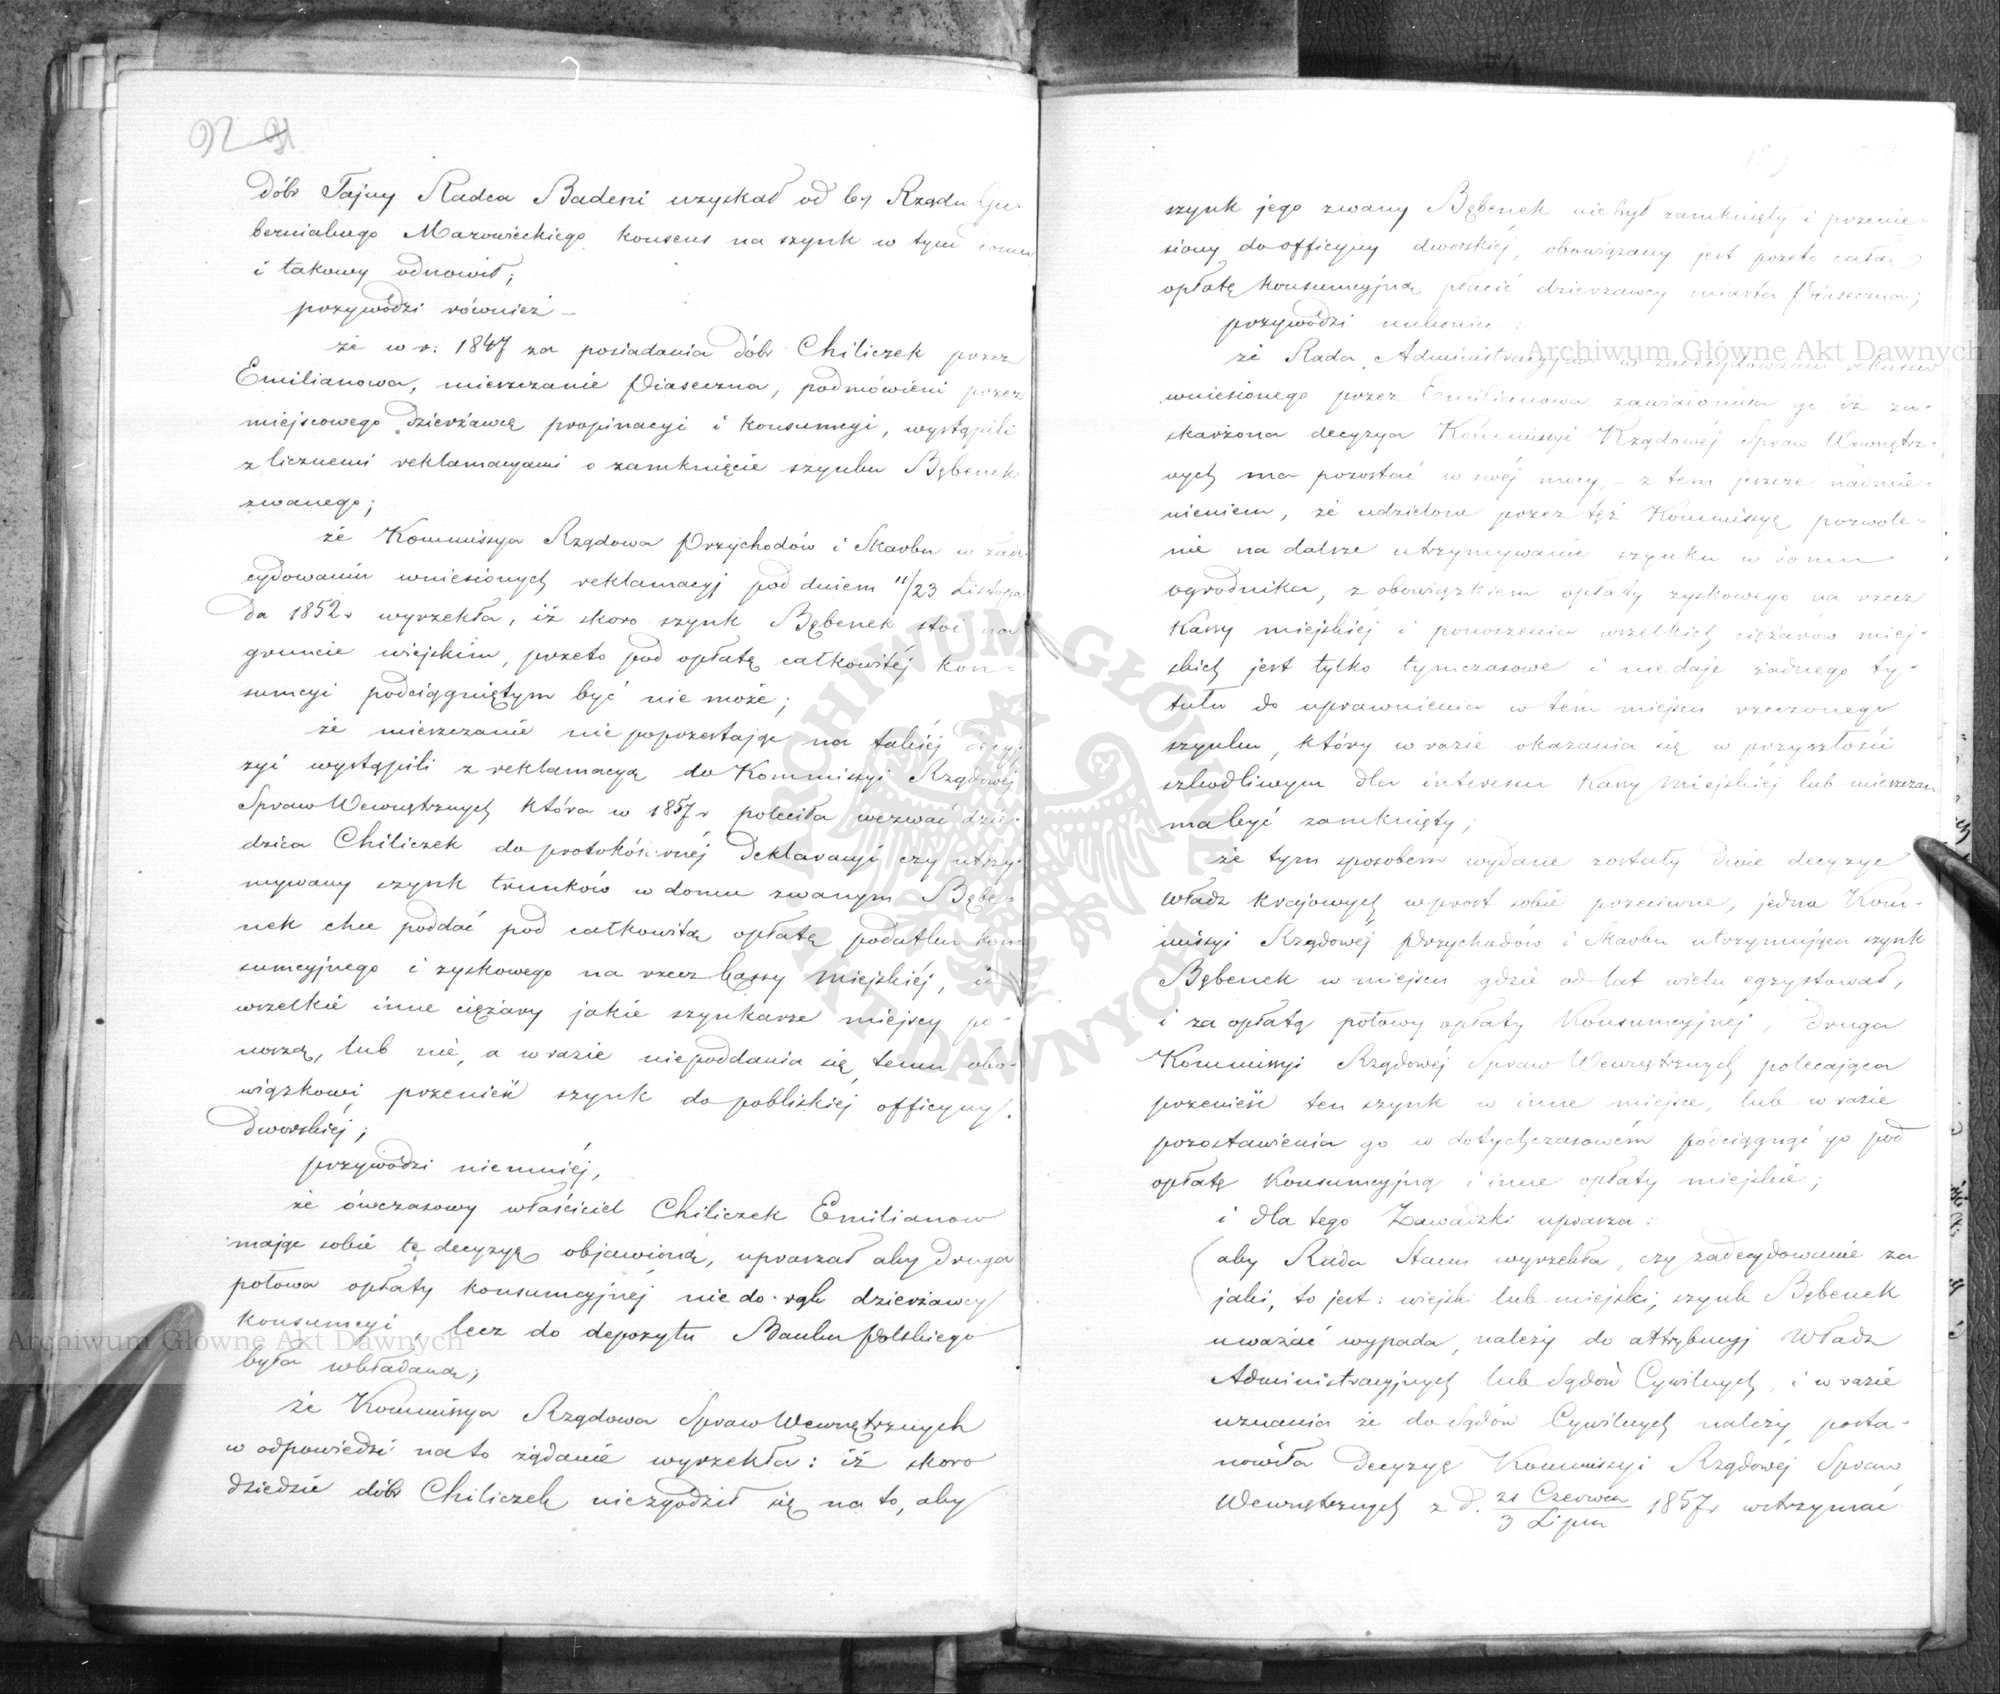 92 91
dóbr Tajny Radca Badeni uzyskał od by Rządu Gu-
bernialnego Mazowieckiego konsens na szynk w tym domu
i takowy odnowił;
przywodzi również –
że w r: 1847 za posiadania dóbr Chiliczek przez
Emilianowa, mieszczanie Piaseczna, podmówieni przez
miejscowego dzierżawcę propinacyi i konsumcyi, wystąpili
z licznemi reklamacyami o zamknięcie szynku Bębenek
zwanego;
że Kommissya Rządowa Przychodów i Skarbu w zade-
cydowaniu wniesionych reklamacyj pod dniem 11/23 Listopa
da 1852 r wyrzekła, iż skoro szynk Bębenek stoi na
gruncie wiejskim, przeto pod opłatę całkowitej kon=
sumcyi podciągniętym być nie może;
że mieszczanie nie poprzestając na takiéj decy-
zyi wystąpili z reklamacyą do Kommissyi Rządowej
Spraw Wewnętrznych która w 1857 r poleciła wezwać dzie-
dzica Chiliczek do protokólarnéj deklaracyi czy utrzy-
mywany szynk trunków w domu zwanym Bębe-
nek chce poddać pod całkowitą opłatę podatku kon
sumcyjnego i zyskowego na rzecz kassy miejskiéj, i
wszelkie inne ciężary jakie szynkarze miejscy po-
noszą, lub nie, a w razie niepoddania się temu obo-
wiązkowi przenieść szynk do pobliskiéj officyny
dworskiéj;
przywodzi niemniéj,
że ówczasowy właściciel Chiliczek Emilianow
mając sobie tę decyzyę objawioną, upraszał aby druga
połowa opłaty konsumcyjnéj nie do rąk dzierżawcy
konsumcyi, lecz do depozytu Banku Polskiego
była wkładaną;
że Kommissya Rządowa Spraw Wewnętrznych
w odpowiedzi na to żądanie wyrzekła: iż skoro
dziedzic dóbr Chiliczek niezgodził się na to, aby
szynk jego zwany Bębenek nie był zamknięty i przenie-
siony do officyny dworskiéj, obowiązany jest przeto całą
opłatę konsumcyjną płacić dzierżawcy miasta Piaseczna;
przywodzi nakoniec:
że Rada Administracyjna w zadecydowaniu rekursu
wniesionego przez Emilianowa zawiadomiła go iż za-
skarżona decyzya Kommissyi Rządowéj Spraw Wewnętrz-
nych ma pozostać w swéj mocy, – z tem jeszcze nadmie-
nieniem, że udzielone przez tęż Kommissyę pozwole-
nie na dalsze utrzymywanie szynku w domu
ogrodnika, z obowiązkiem opłaty zyskowego na rzecz
Kassy miejskiéj i ponoszenia wszelkich ciężarów miej-
skich jest tylko tymczasowe i nie daje żadnego ty-
tułu do uprawnienia w tém miejscu rzeczonego
szynku, który w razie okazania się w przyszłości
szkodliwym dla interessu Kassy Miejskiéj lub mieszczan
ma być zamknięty;
że tym sposobem wydane zostały dwie decyzye
Władz krajowych wprost sobie przeciwne, jedna Kom-
missyi Rządowéj Przychodów i Skarbu utrzymująca szynk
Bębenek w miejscu gdzie od lat wielu egzystował,
i za opłatą połowy opłaty Konsumcyjnéj, druga
Kommissyi Rządowéj Spraw Wewnętrznych polecająca
przenieść ten szynk w inne miejsce, lub w razie
pozostawienia go w dotychczasowém podciągnąć go pod
opłatę Konsumcyjną i inne opłaty miejskie;
i dla tego Zawadzki uprasza:
aby Rada Stanu wyrzekła, czy zadecydowanie za
jaki, to jest: wiejski lub miejski, szynk Bębenek
uważać wypada, należy do attrybucyj Władz
Administracyjnych lub Sądów Cywilnych, i w razie
uznania że do Sądów Cywilnych należy, posta-
nowiła decyzyę Kommissyi Rządowéj Spraw
Wewnętrznych z d. 21 Czerwca / 3 Lipca 1857 r wstrzymać
Archiwum Główne Akt Dawnych
Archiwum Główne Akt Dawnych
ARCHIWUM GŁÓWNE AKT DAWNYCH